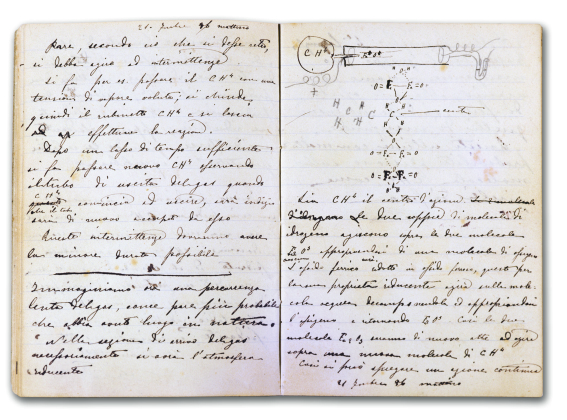 21 Luglio 86 mattino
Pare, secondo ciò che si disse ieri,
si debba agire ad intermittenze.
Si fa per es. passare il CH⁴ con una
tensione di vapore voluta; si chiude
quindi il rubinetto CH⁴ e si lascia
effettuare la reazione.
Dopo un lasso di tempo sufficiente
si fa passare nuovo CH⁴ osservando
il tubo di uscita del gas quando
CH⁴
comincia ad uscire, sarà indizio
tubo
sarà di nuovo occupato da esso
Queste intermittenze dovranno avere
la minore durata possibile
Immaginiamo ad una percorrenza
lenta del gas, come pare più probabile
che abbia avuto luogo in natura.
Nella sezione di arrivo del gas
necessariamente si avrà l'atmosfera
riducente
CH⁴
+
H C H C
H H
O = F F = O
C centro
O - F - F - O
O = F F = O
Sia CH⁴ il centro d'azione
d'idrogeno Le due coppie di molecole di
idrogeno agiscono sopra le due molecole
appropriandosi di una molecola di ossigeno
L'ossido ferrico ridotto in ossido ferroso, questo per
la sua proprietà riducente agirà sulla mole-
cola seguente decomponendola ed appropriandosi
l'ossigeno e ritornando Così le due
molecole saranno di nuovo atte ad agire
sopra una nuova molecola di CH⁴
Così si può spiegare un'azione continua
21 Luglio 86 mattino